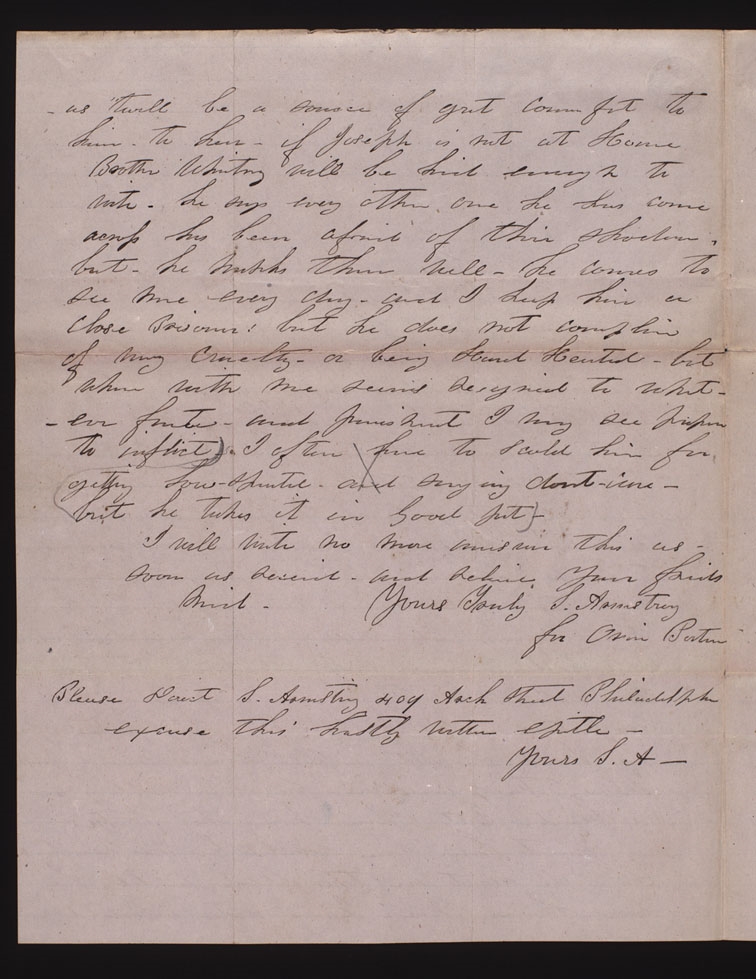 - as twill be a source of gret comfort to
him - to hear - if Joseph is not at Home
Brother Whitney will be kind enough to
write - he says every other one he has come
across has been afraid of their shadow.
but - he thinks them well - he comes to
see me every day - and I keep him a
close Prisoner! but he does not complain
of my cruelty - or being Hard Hearted - but
when with me seems resigned to what-
- ever fate - and punishment I may see proper
to inflict). I often have to scold him for
getting low-spirited - and saying dont-care -
but he takes it in Good part) -
I will write no more answer this as -
soon as received - and relieve your friends
mind - Yours Truly S. Armstrong
for Orin Porter
Please Direct S. Armstrong 409 Arch Street Philadelphia
excuse this hastly written epistle -
Yours S. A -